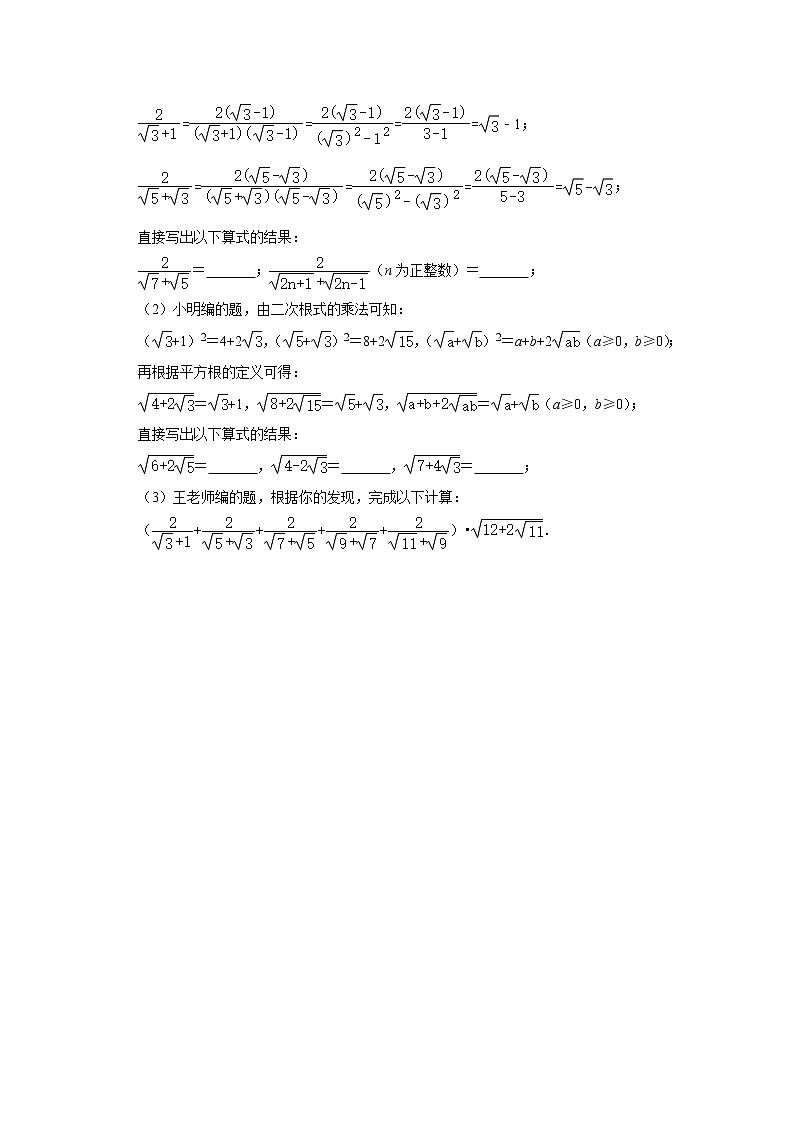 2/(√3+1)=2(√3-1)/((√3+1)(√3-1))=2(√3-1)/((√3)²-1²)=2(√3-1)/(3-1)=√3﹣1;
2/(√5+√3)=2(√5-√3)/((√5+√3)(√5-√3))=2(√5-√3)/((√5)²-(√3)²)=2(√5-√3)/(5-3)=√5-√3;
直接写出以下算式的结果:
2/(√7+√5)=_______;2/(√(2n+1)+√(2n-1))(n为正整数)=_______;
(2)小明编的题,由二次根式的乘法可知:
(√3+1)²=4+2√3,(√5+√3)²=8+2√15,(√a+√b)²=a+b+2√ab(a≥0,b≥0);
再根据平方根的定义可得:
√(4+2√3)=√3+1,√(8+2√15)=√5+√3,√(a+b+2√ab)=√a+√b(a≥0,b≥0);
直接写出以下算式的结果:
√(6+2√5)=_______,√(4-2√3)=_______,√(7+4√3)=_______;
(3)王老师编的题,根据你的发现,完成以下计算:
(2/(√3+1)+2/(√5+√3)+2/(√7+√5)+2/(√9+√7)+2/(√11+√9))•√(12+2√11).